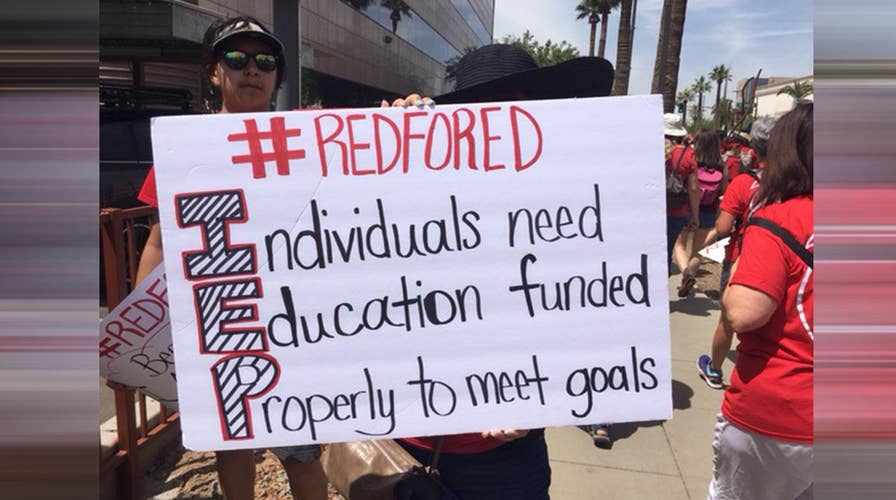 #REDFORED
Individuals need
Education funded
Properly to meet goals
#REDF